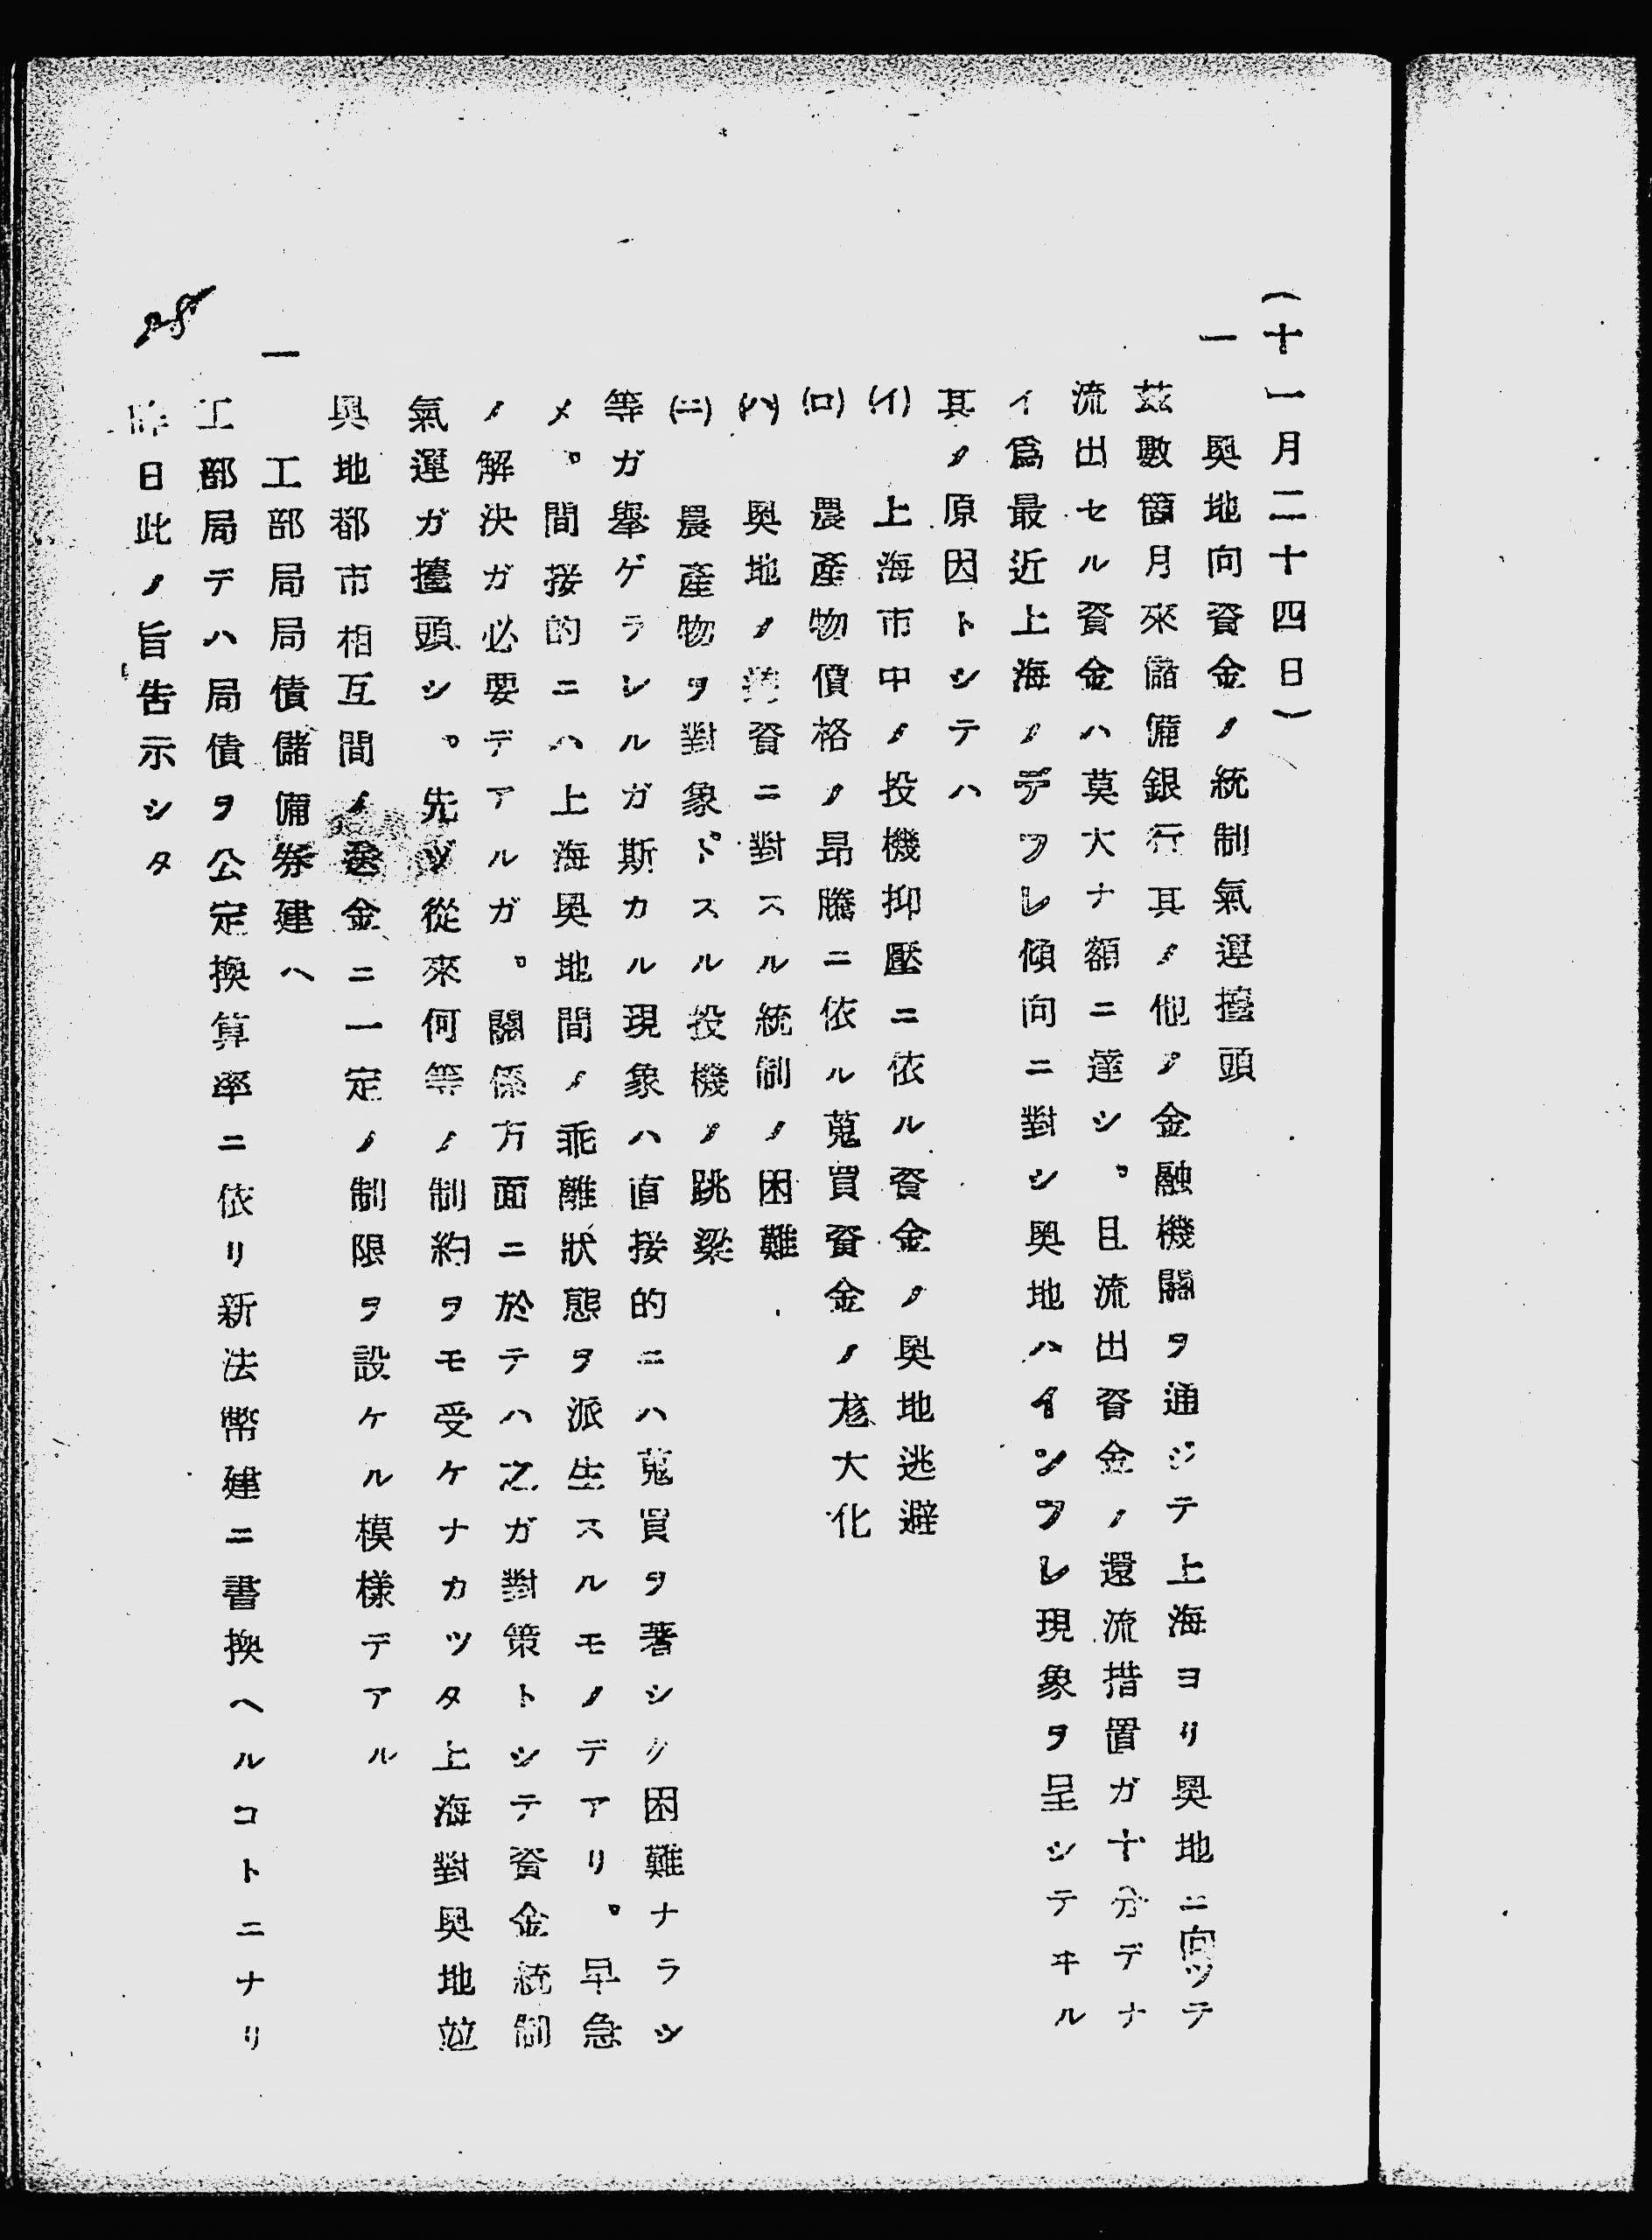 (十一月二十四日)
一　奥地向資金ノ統制氣運擡頭
茲數箇月來儲備銀行其ノ他ノ金融機關ヲ通ジテ上海ヨリ奥地ニ向ツテ
流出セル資金ハ莫大ナ額ニ達シ。且流出資金ノ還流措置ガ十分デナ
イ爲最近上海ノデフレ傾向ニ對シ奥地ハインフレ現象ヲ呈シテヰル
其ノ原因トシテハ
(イ)　上海市中ノ投機抑壓ニ依ル資金ノ奥地逃避
(ロ)　農產物價格ノ昂騰ニ依ル蒐買資金ノ尨大化
(ハ)　奥地ノ資ニ對スル統制ノ困難
(ニ)　農產物ヲ對象トスル投機ノ跳梁
等ガ擧ゲラレルガ斯カル現象ハ直接的ニハ蒐買ヲ著シク困難ナラシ
メ。間接的ニハ上海奥地間ノ乖離狀態ヲ派生スルモノデアリ。早急
ノ解決ガ必要デアルガ。關係方面ニ於テハ之ガ對策トシテ資金統制
氣運ガ擡頭シ。先ヅ從來何等ノ制約ヲモ受ケナカツタ上海對奥地竝
奥地都市相互間ノ送金ニ一定ノ制限ヲ設ケル模樣デアル
一　工部局局債儲備券建ヘ
工部局デハ局債ヲ公定換算率ニ依リ新法幣建ニ書換ヘルコトニナリ
昨日此ノ旨告示シタ
28